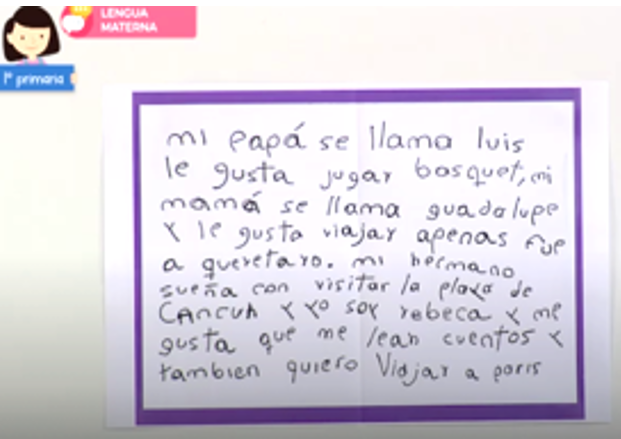 LENGUA
MATERNA
1° primaria
mi papá se llama luis
le gusta jugar basquet, mi
mamá se llama guadalupe
Y le gusta viajar apenas fue
a queretaro. mi hermano
sueña con visitar la playa de
CAncun Y Yo soy rebeca Y me
gusta que me lean cuentos Y
tambien quiero Viajar a paris